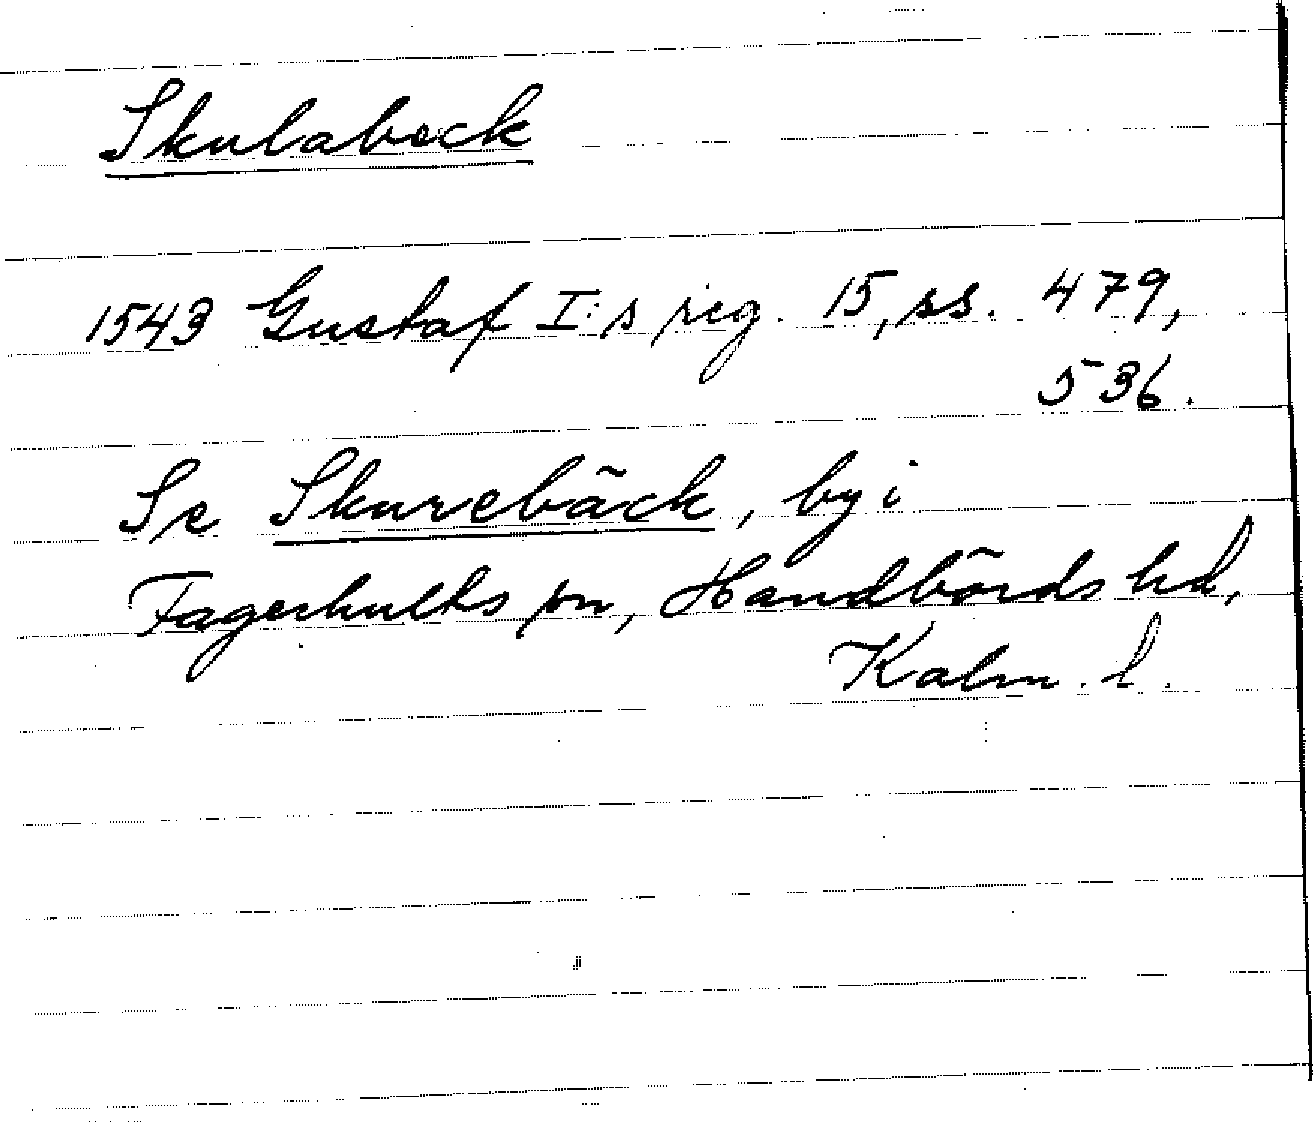 Skulabeck
1543 Gustaf I:s reg. 15, ss. 479,
536.
Se Skurebäck, by i
Fagerhults sn, Handbörds hd,
Kalm. l.